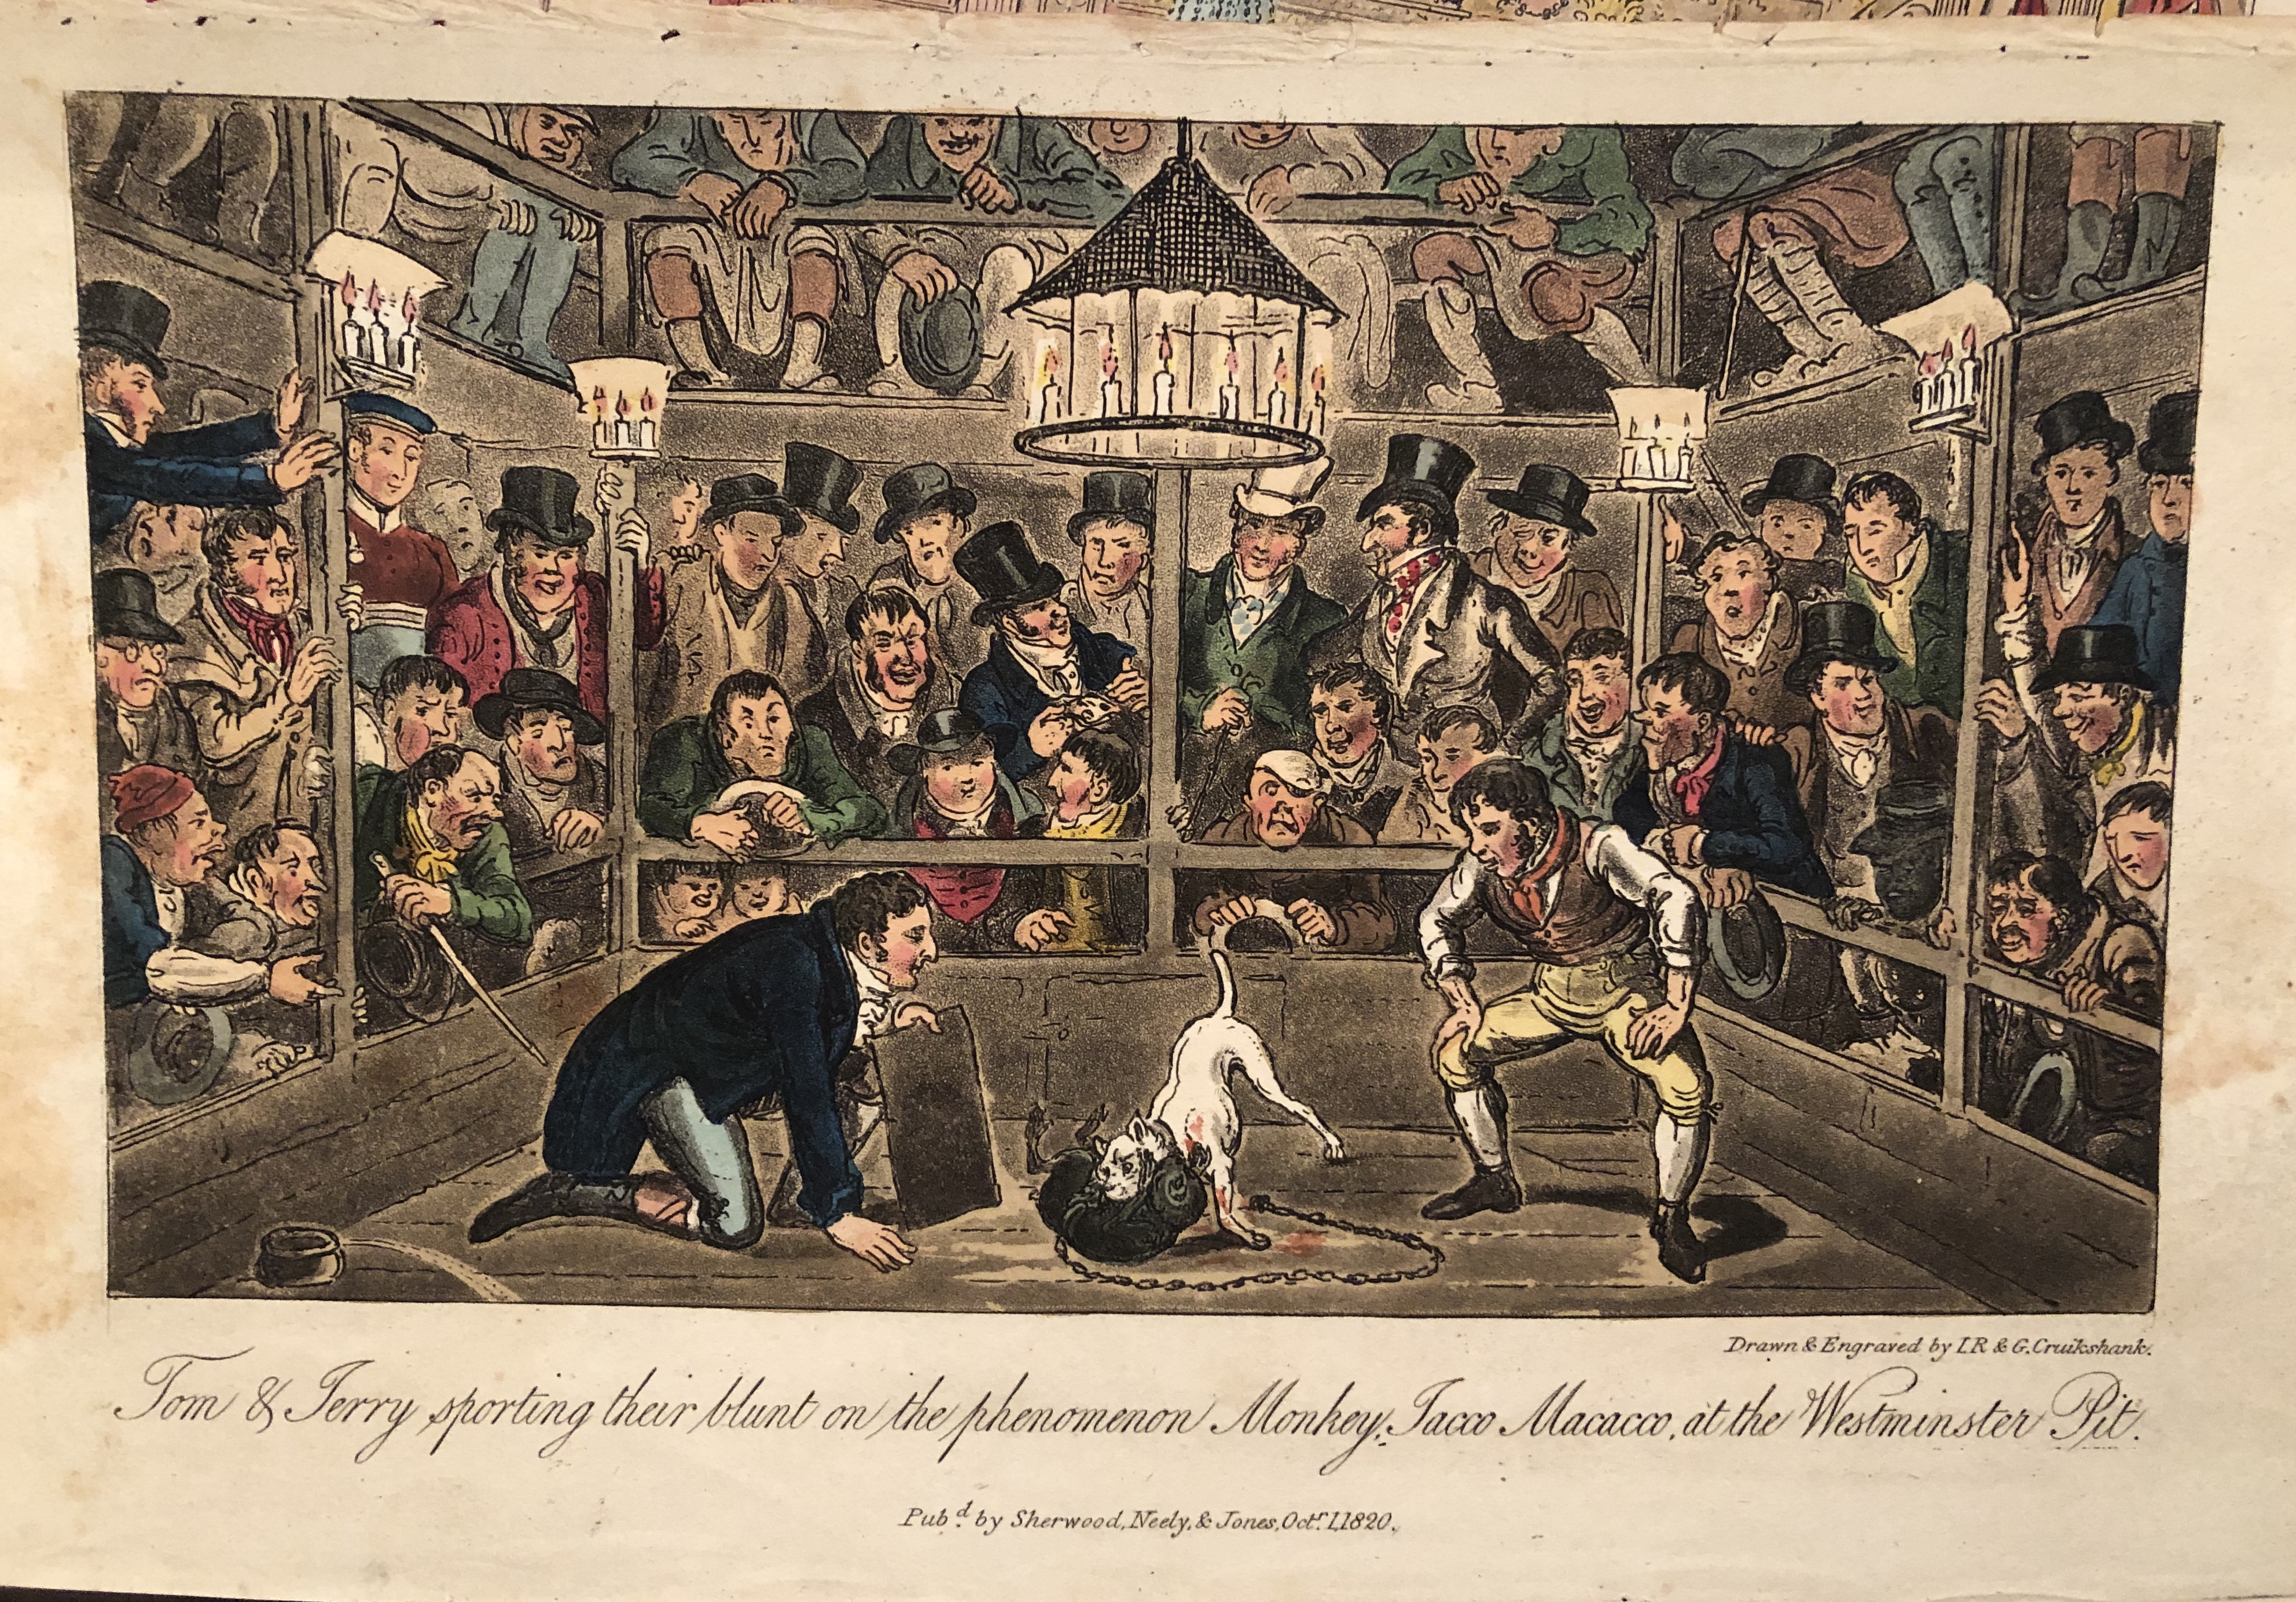 Drawn & Engraved by I.R & G. Cruikshank.
Tom & Jerry sporting their blunt on the phenomenon Monkey, Jacco Macacco, at the Westminster Pit.
Pub.d by Sherwood, Neely, & Jones, Oct.r 1, 1820.